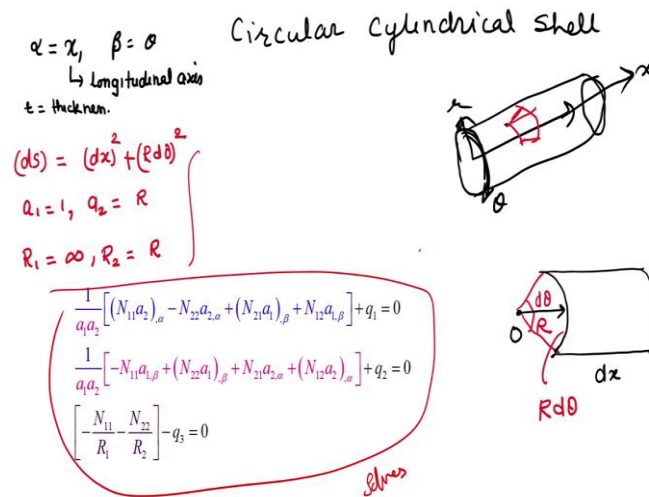 Circular Cylindrical Shell
α = x, β = θ
↳ Longitudinal axis
t = thicknen.
(ds) = (dx)² + (Rdθ)²
a₁ = 1, a₂ = R
R₁ = ∞, R₂ = R
x
r
θ
1/(a₁a₂) [(N₁₁a₂),α − N₂₂a₂,α + (N₂₁a₁),β + N₁₂a₁,β] + q₁ = 0
1/(a₁a₂) [−N₁₁a₁,β + (N₂₂a₁),β + N₂₁a₂,α + (N₁₂a₂),α] + q₂ = 0
[−N₁₁/R₁ − N₂₂/R₂] − q₃ = 0
dθ
O
R
dx
Rdθ